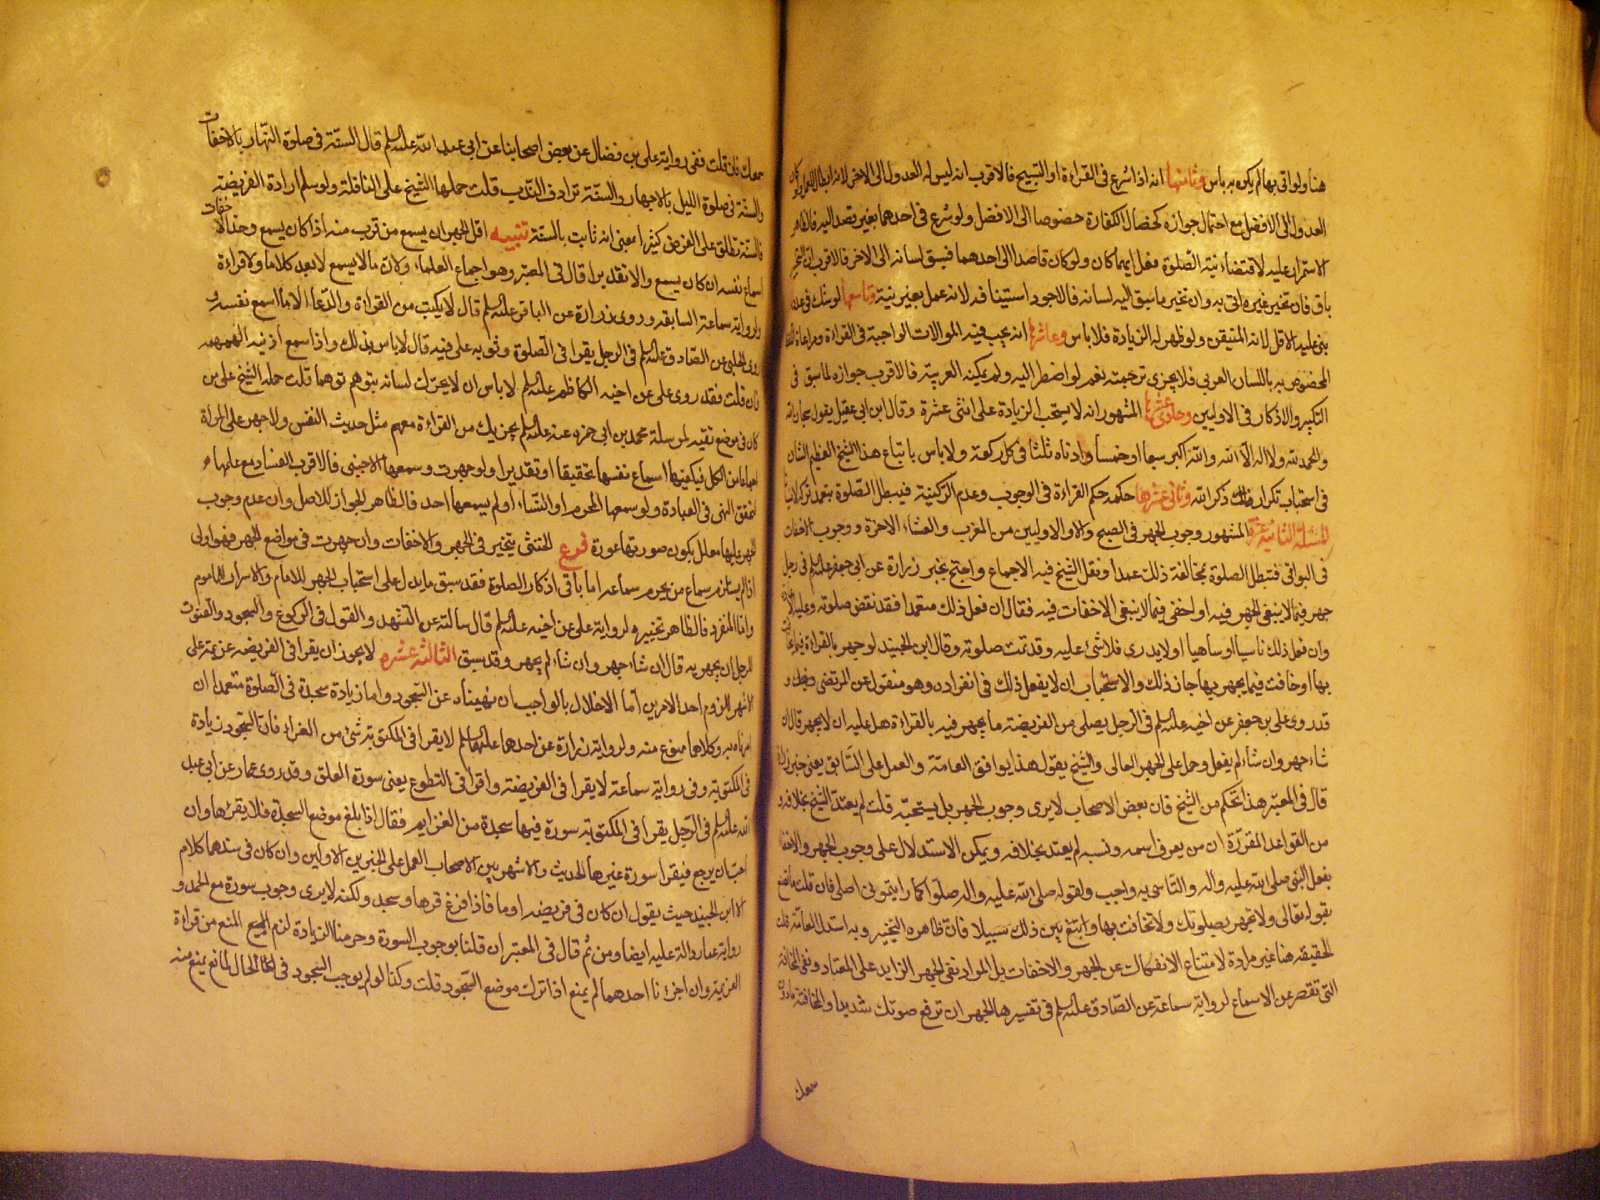 هنا ولو اتى بها لم يكن به باس وثامنها انه اذا شرع في القراءة او التسبيح فالاقرب انه ليس له العدول الى الاخر لانه ابطال للعمل ولو كان
العدول الى الافضل مع احتمال جوازه كخصال الكفارة خصوصا الى الافضل ولو شرع في احدهما بغير قصد اليه فالظاهر
الاستمرار عليه لاقتضاء نية الصلوة فعل ايهما كان ولو كان قاصدا الى احدهما فسبق لسانه الى الاخر فالاقرب ان التخير
باق فان تخير غيره اتى به وان تخير ما سبق اليه لسانه فالاجود استينافه لانه عمل بغير نية وتاسعها لو شك في عدده
بنى على الاقل لانه المتيقن ولو ظهر له الزيادة فلا باس وعاشرها انه يجب فيه الموالات الواجبة في القراءة ومراعاة اللفظ
المخصوص به باللسان العربي فلا يجزي ترجمته نعم لو اضطر اليه ولم يمكنه العربية فالاقرب جوازه لما سبق في
التكبير والاذكار في الاوليين وحادى عشرها المشهور انه لا يستحب الزيادة على اثنتى عشرة وقال ابن ابي عقيل يقول سبحان الله
والحمد لله ولا اله الا الله والله اكبر سبعا او خمسا وادناه ثلثا في كل ركعة ولا باس باتباع هذا الشيخ العظيم الشان
في استحباب تكرار ذكر الله وثاني عشرها حكمه حكم القراءة في الوجوب وعدم الركنية فيبطل الصلوة بتعمد تركه
المسئلة الثانية عشر المشهور وجوب الجهر في الصبح والاوليين من المغرب والعشاء الاخرة ووجوب الاخفات
في البواقي فتبطل الصلوة بمخالفة ذلك عمدا ونقل الشيخ فيه الاجماع واحتج بخبر زرارة عن ابي جعفر عليه السلم في رجل
جهر فيما لا ينبغي الجهر فيه او اخفى فيما لا ينبغي الاخفات فيه فقال ان فعل ذلك متعمدا فقد نقض صلوته وعليه الاعادة
وان فعل ذلك ناسيا او ساهيا او لا يدرى فلا شئ عليه وقد تمت صلوته وقال ابن الجنيد لو جهر بالقراءة فيما يخافت
بها او خافت فيما يجهر بها جاز ذلك والاستحباب ان لا يفعل ذلك في انفراده وهو منقول عن المرتضى و
قد روى علي بن جعفر عن اخيه عليه السلم في الرجل يصلى من الفريضة ما يجهر فيه بالقراءة هل عليه ان لا يجهر قال ان
شاء جهر وان شاء لم يفعل وحمل على الجهر العالى والشيخ يقول هذا يوافق العامة والعمل على السابق يعنى خبر زرارة
قال في المعتبر هذا تحكم من الشيخ فان بعض الاصحاب لا يرى وجوب الجهر بل يستحبه قلت لم يعتد الشيخ بخلافه
من القواعد المقررة ان من يعرف اسمه ونسبه لم يعتد بخلافه ويمكن الاستدلال على وجوب الجهر والاخفات
بفعل النبي صلى الله عليه واله والتاسى به واجب ولقوله صلى الله عليه واله صلوا كما رايتموني اصلي فان قلت ما تصنع
بقوله تعالى ولا تجهر بصلوتك ولا تخافت بها وابتغ بين ذلك سبيلا فان ظاهره التخيير وبه استدل العامة قلت
الحقيقة هنا غير مرادة لامتناع الانفكاك عن الجهر والاخفات بل المراد نفى الجهر الزايد على المعتاد ونفى المخافتة
التى تقصر عن الاسماع لرواية سماعة عن الصادق عليه السلم في تفسيرها الجهر ان ترفع صوتك شديدا والمخافتة ما دون
سمعك
سمعك فان قلت ففي رواية على بن فضال عن بعض اصحابنا عن ابي عبد الله عليه السلم قال السنة في صلوة النهار بالاخفات
والسنة في صلوة الليل بالاجهار والسنة ترادف الندب قلت حملها الشيخ على النافلة ولو سلم ارادة الفريضة
فالسنة تطلق على الفرض كثيرا بمعنى انه ثابت بالسنة تنبيه اقل الجهر ان يسمع من قرب منه اذا كان يسمع وحد الاخفات
اسماع نفسه ان كان يسمع والا تقديرا قال في المعتبر وهو اجماع العلماء ولان ما لا يسمع لا يعد كلاما ولا قراءة
ولرواية سماعة السابقة وروى زرارة عن الباقر عليه السلم قال لا يكتب من القراءة والدعا الا ما اسمع نفسه و
روى الحلبي عن الصادق عليه السلم في الرجل يقرا في الصلوة وثوبه على فيه قال لا باس بذلك واذا سمع اذنيه الهمهمه
فان قلت فقد روى على عن اخيه الكاظم عليه السلم لا باس ان لا يحرك لسانه يتوهم توهما قلت حمله الشيخ على من
كان في موضع تقيه لمرسلة محمد بن ابي حمزه عنه عليه السلم يجزيك من القراءة معهم مثل حديث النفس ولا جهر على المراة
اجماعا من الكل فيكفيها اسماع نفسها تحقيقا او تقديرا ولو جهرت وسمعها الاجنبي فالاقرب الفساد مع علمها
لتحقق النهى في العبادة ولو سمعها المحرم او النساء او لم يسمعها احد فالظاهر الجواز للاصل وان عدم وجوب
الجهر عليها معلل بكون صوتها عورة فرع الخنثى يتخير في الجهر والاخفات وان جهرت في مواضع الجهر فهو اولى
اذا لم يستلزم سماع من يحرم سماعه اما باقى اذكار الصلوة فقد سبق ما يدل على استحباب الجهر للامام والاسرار للماموم
واما المنفرد فالظاهر تخييره لرواية على عن اخيه عليه السلم قال سالته عن التشهد والقول في الركوع والسجود والقنوت
للرجل ان يجهر به قال ان شاء جهر وان شاء لم يجهر وقد سبق الثالثة عشره لا يجوز ان يقرا في الفريضة عزيمة على
الاشهر للزوم احد الامرين اما الاخلال بالواجب ان نهيناه عن السجود واما زيادة سجدة في الصلوة متعمدا ان
امرناه به وكلاهما ممنوع منه ولرواية زرارة عن احدهما عليهما السلم لا يقرا في المكتوبة شئ من العزائم فان السجود زيادة
في المكتوبة وفي رواية سماعة لا يقرا في الفريضة واقرا في التطوع يعنى سورة العلق وقد روى عمار عن ابي عبد
الله عليه السلم في الرجل يقرا في المكتوبة سورة فيها سجدة من العزايم فقال اذا بلغ موضع السجدة فلا يقرها وان
احب ان يرجع فيقرا سورة غيرها الحديث والاشهر بين الاصحاب العمل على الخبرين الاولين وان كان في سندها كلام
الا ابن الجنيد حيث يقول ان كان في فريضه اوما فاذا فرغ قرها وسجد ولكنه لا يرى وجوب سورة مع الحمد و
رواية عمار دالة عليه ايضا ومن ثم قال في المعتبر ان قلنا بوجوب السورة وحرمنا الزيادة لزم المنع من قراءة
العزيمة وان اجزنا احدهما لم يمنع اذا ترك موضع السجود قلت وكذا لو لم يوجب السجود في الحال لمانع يمنع منه